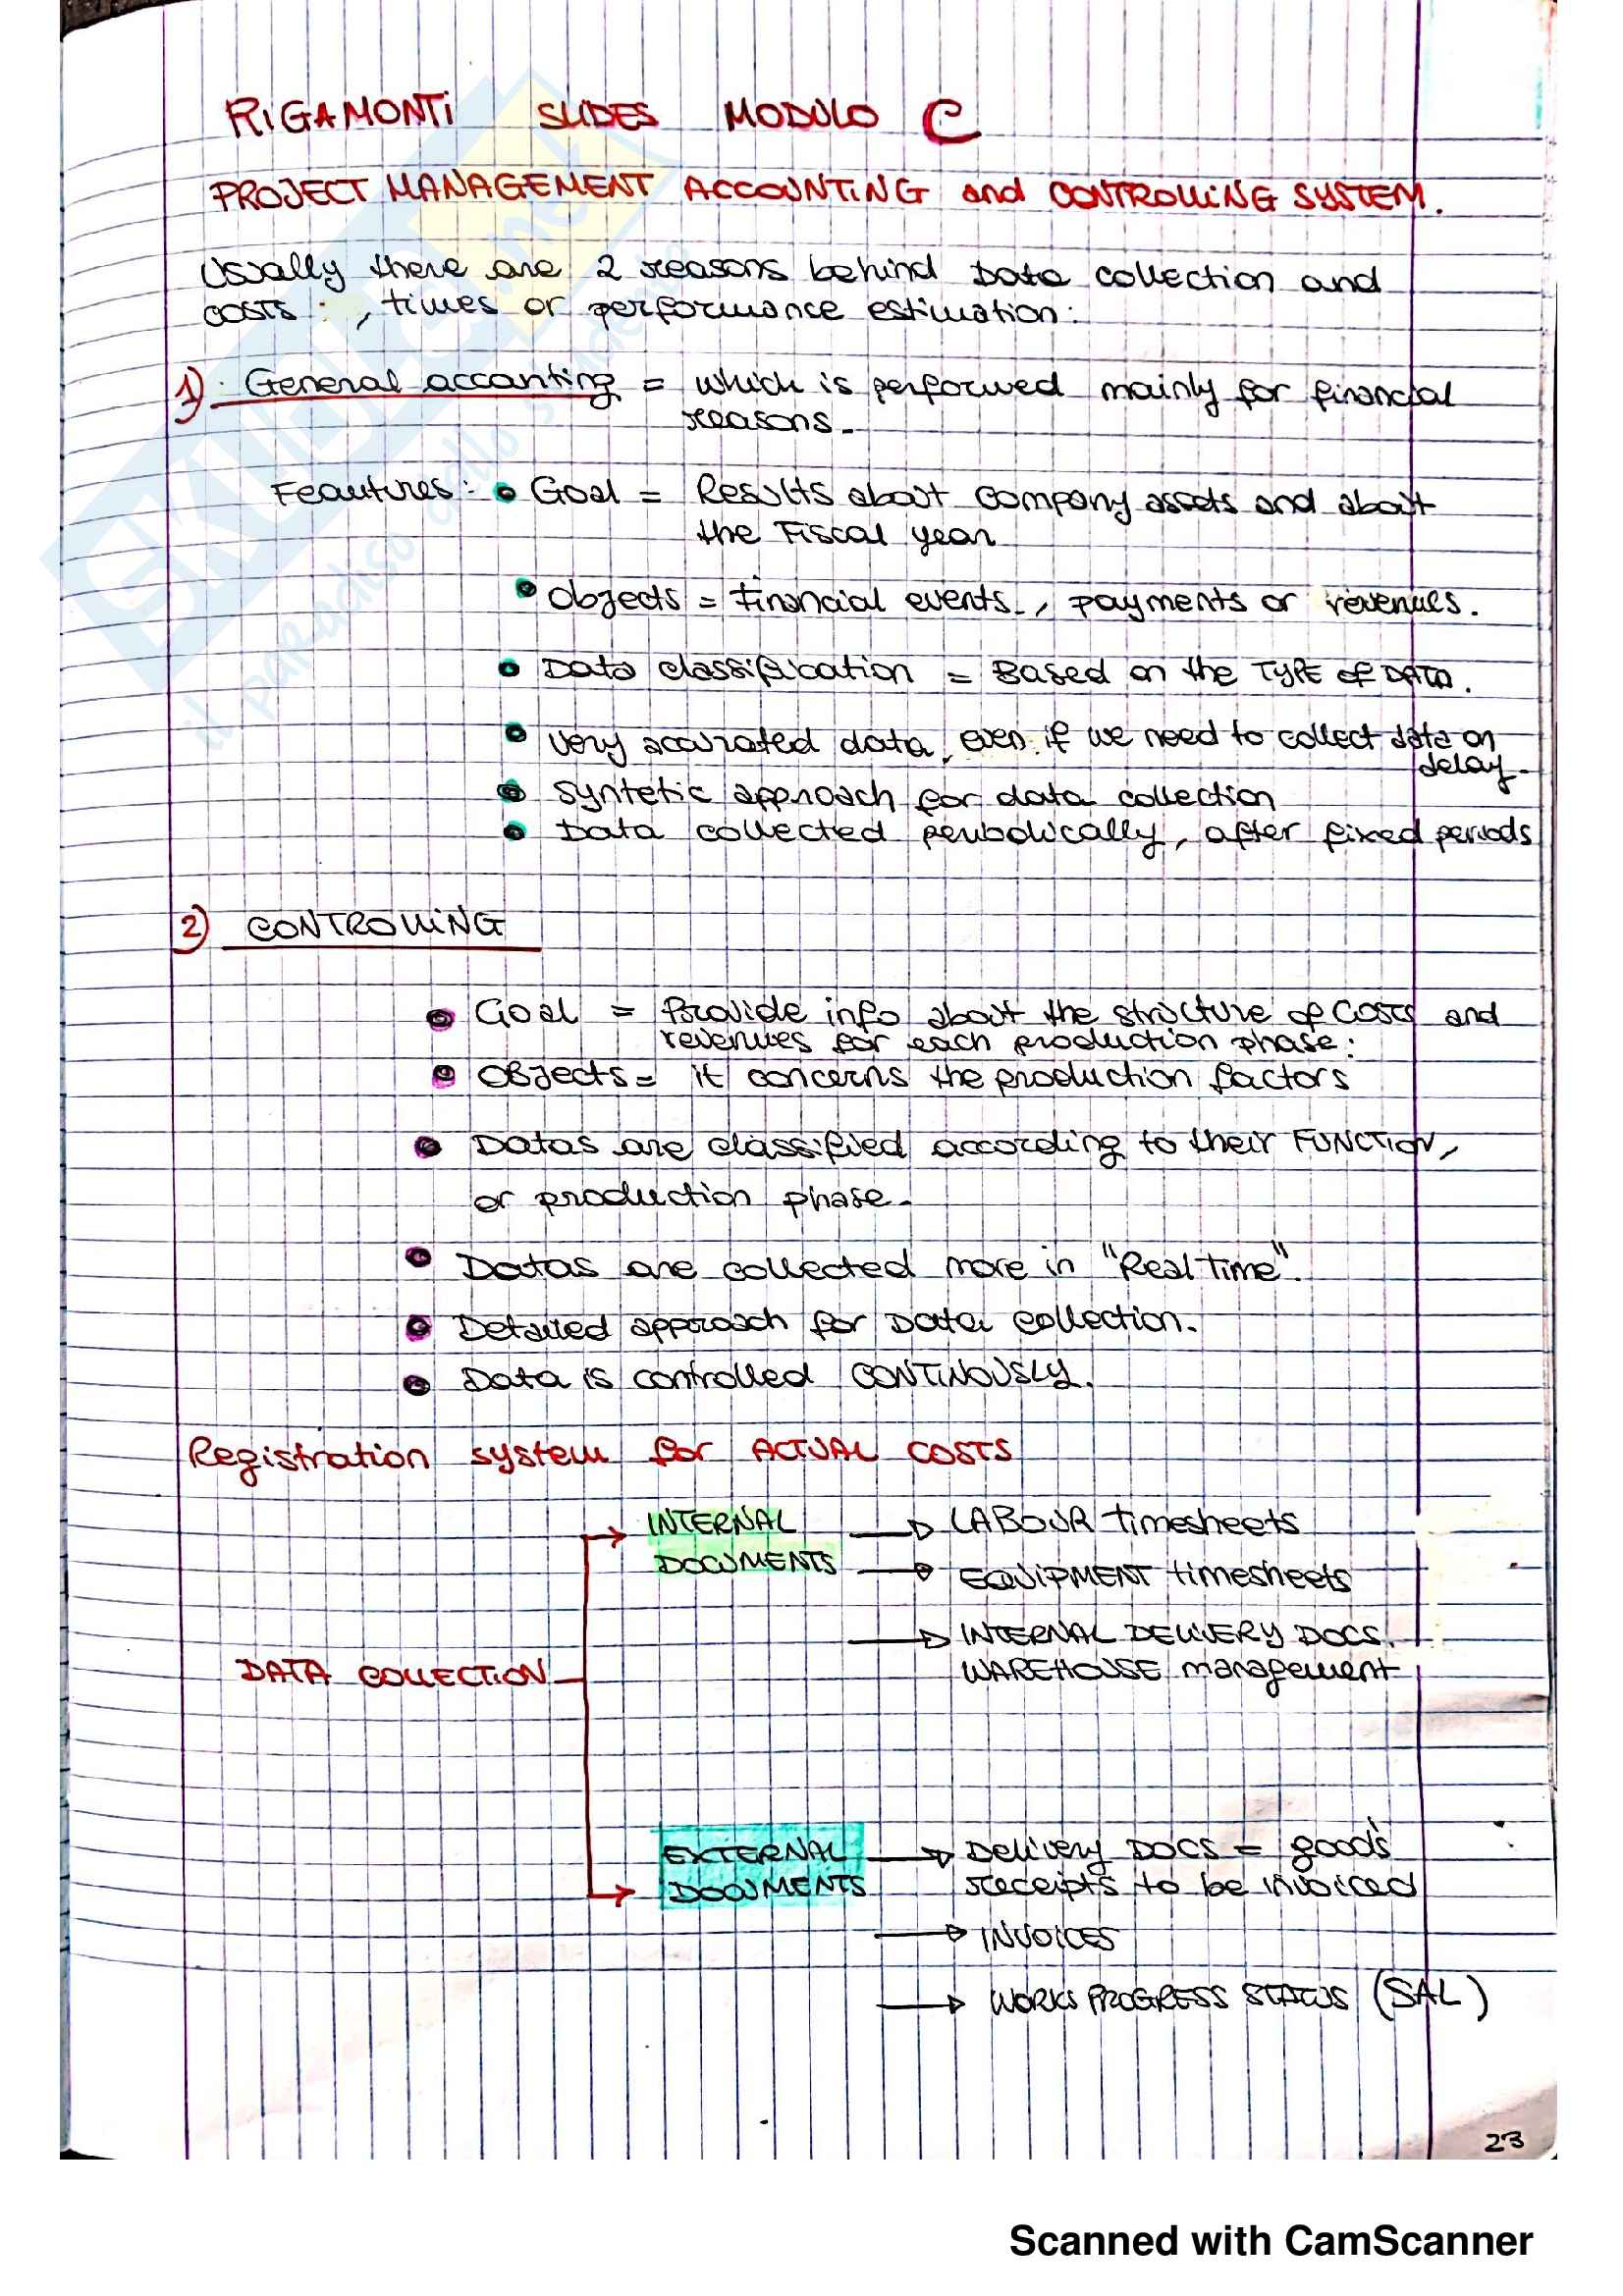 RIGAMONTI SLIDES MODULO C
PROJECT MANAGEMENT ACCOUNTING and CONTROLLING SYSTEM.
Usually there are 2 reasons behind Data collection and
costs , times or performance estimation:
1) General accanting = which is performed mainly for financial
reasons.
Feautures: • Goal = Results about company assets and about
the Fiscal year
• Objects = financial events, payments or revenues.
• Data classification = Based on the TYPE of DATA.
• very accurated data, even if we need to collect data on
delay.
• syntetic approach for data collection
• Data collected peribolically, after fixed periods
2) CONTROLLING
• Goal = Provide info about the structure of COSTS and
revenues for each production phase:
• Objects = it concerns the production factors
• Datas are classified according to their FUNCTION,
or production phase.
• Datas are collected more in "Real Time".
• Detailed approach for Data collection.
• Data is controlled CONTINOUSLY.
Registration system for ACTUAL COSTS
INTERNAL → LABOUR timesheets
DOCUMENTS → EQUIPMENT timesheets
→ INTERNAL DELIVERY DOCS.
DATA COLLECTION WAREHOUSE management
EXTERNAL → Delivery DOCS = goods
DOCUMENTS receipts to be invoiced
→ INVOICES
→ WORKS PROGRESS STATUS (SAL)
23
Scanned with CamScanner
SKUOLA.net
il paradiso dello studente